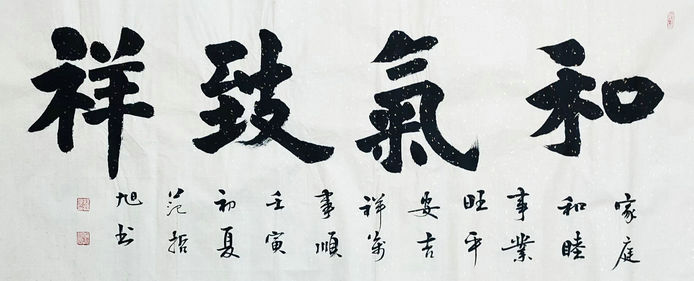 和氣致祥
家庭
和睦
事業
旺平
安吉
祥萬
事順
壬寅
初夏
范哲
旭书